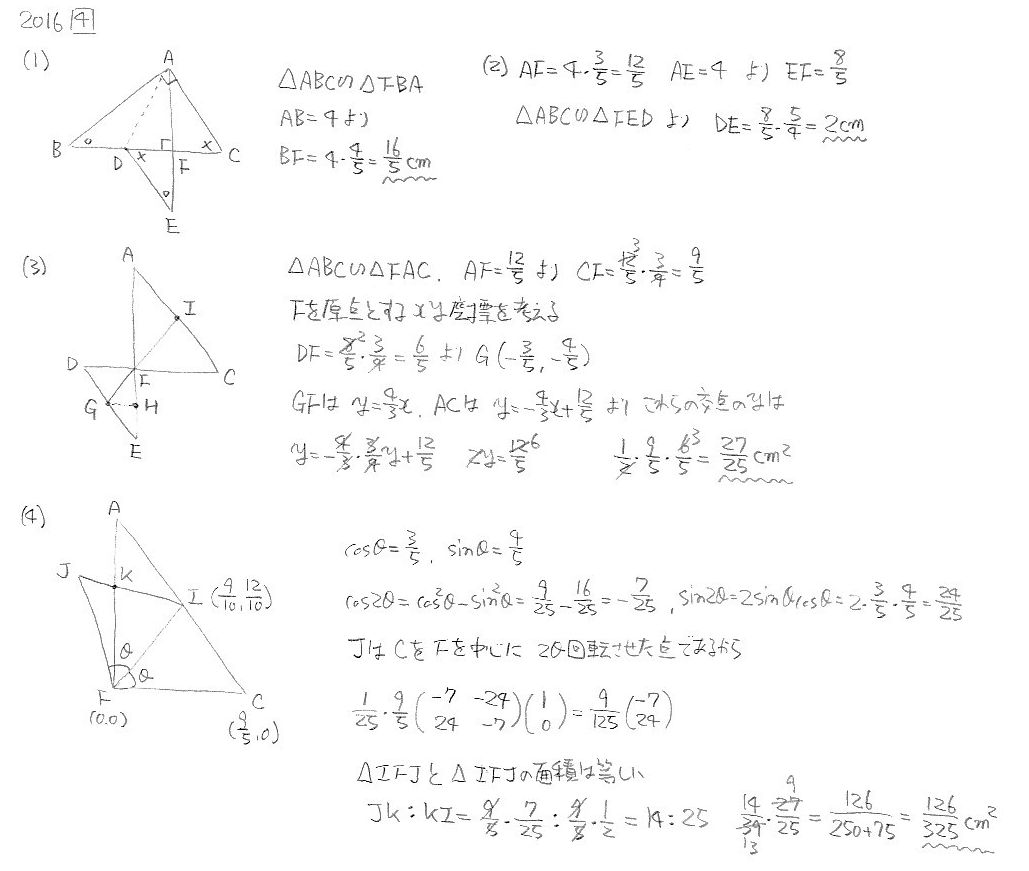 2016 4
(1)
A
B
D
F
C
E
△ABC∽△FBA
AB=4より
BF=4・4/5=16/5cm
(2) AF=4・3/5=12/5 AE=4 より EF=8/5
△ABC∽△FED より DE=8/5・5/4=2cm
(3)
A
I
D
F
C
G
H
E
△ABC∽△FAC. AF=12/5より CF=12/5・3/4=9/5
Fを原点とするxy座標を考える
DF=8/5・3/4=6/5 より G(-3/5,-4/5)
GFは y=4/3x. ACは y=-4/3x+12/5 より これらの交点のyは
y=-4/3・3/4y+12/5 2y=12/5 1/2・9/5・6/5=27/25cm²
(4)
A
J
K
I(9/10,12/10)
θ
θ
F
(0,0)
C
(9/5,0)
cosθ=3/5, sinθ=4/5
cos2θ=cos²θ-sin²θ=9/25-16/25=-7/25, sin2θ=2sinθcosθ=2・3/5・4/5=24/25
JはCをFを中心に2θ回転させた点であるから
1/25・9/5(-7 -24 24 -7)(1 0)=9/125(-7 24)
△IFJと△IFJの面積は等しい
JK:KI=9/5・7/25:9/5・1/2=14:25 14/39・27/25=126/250+75=126/325cm²